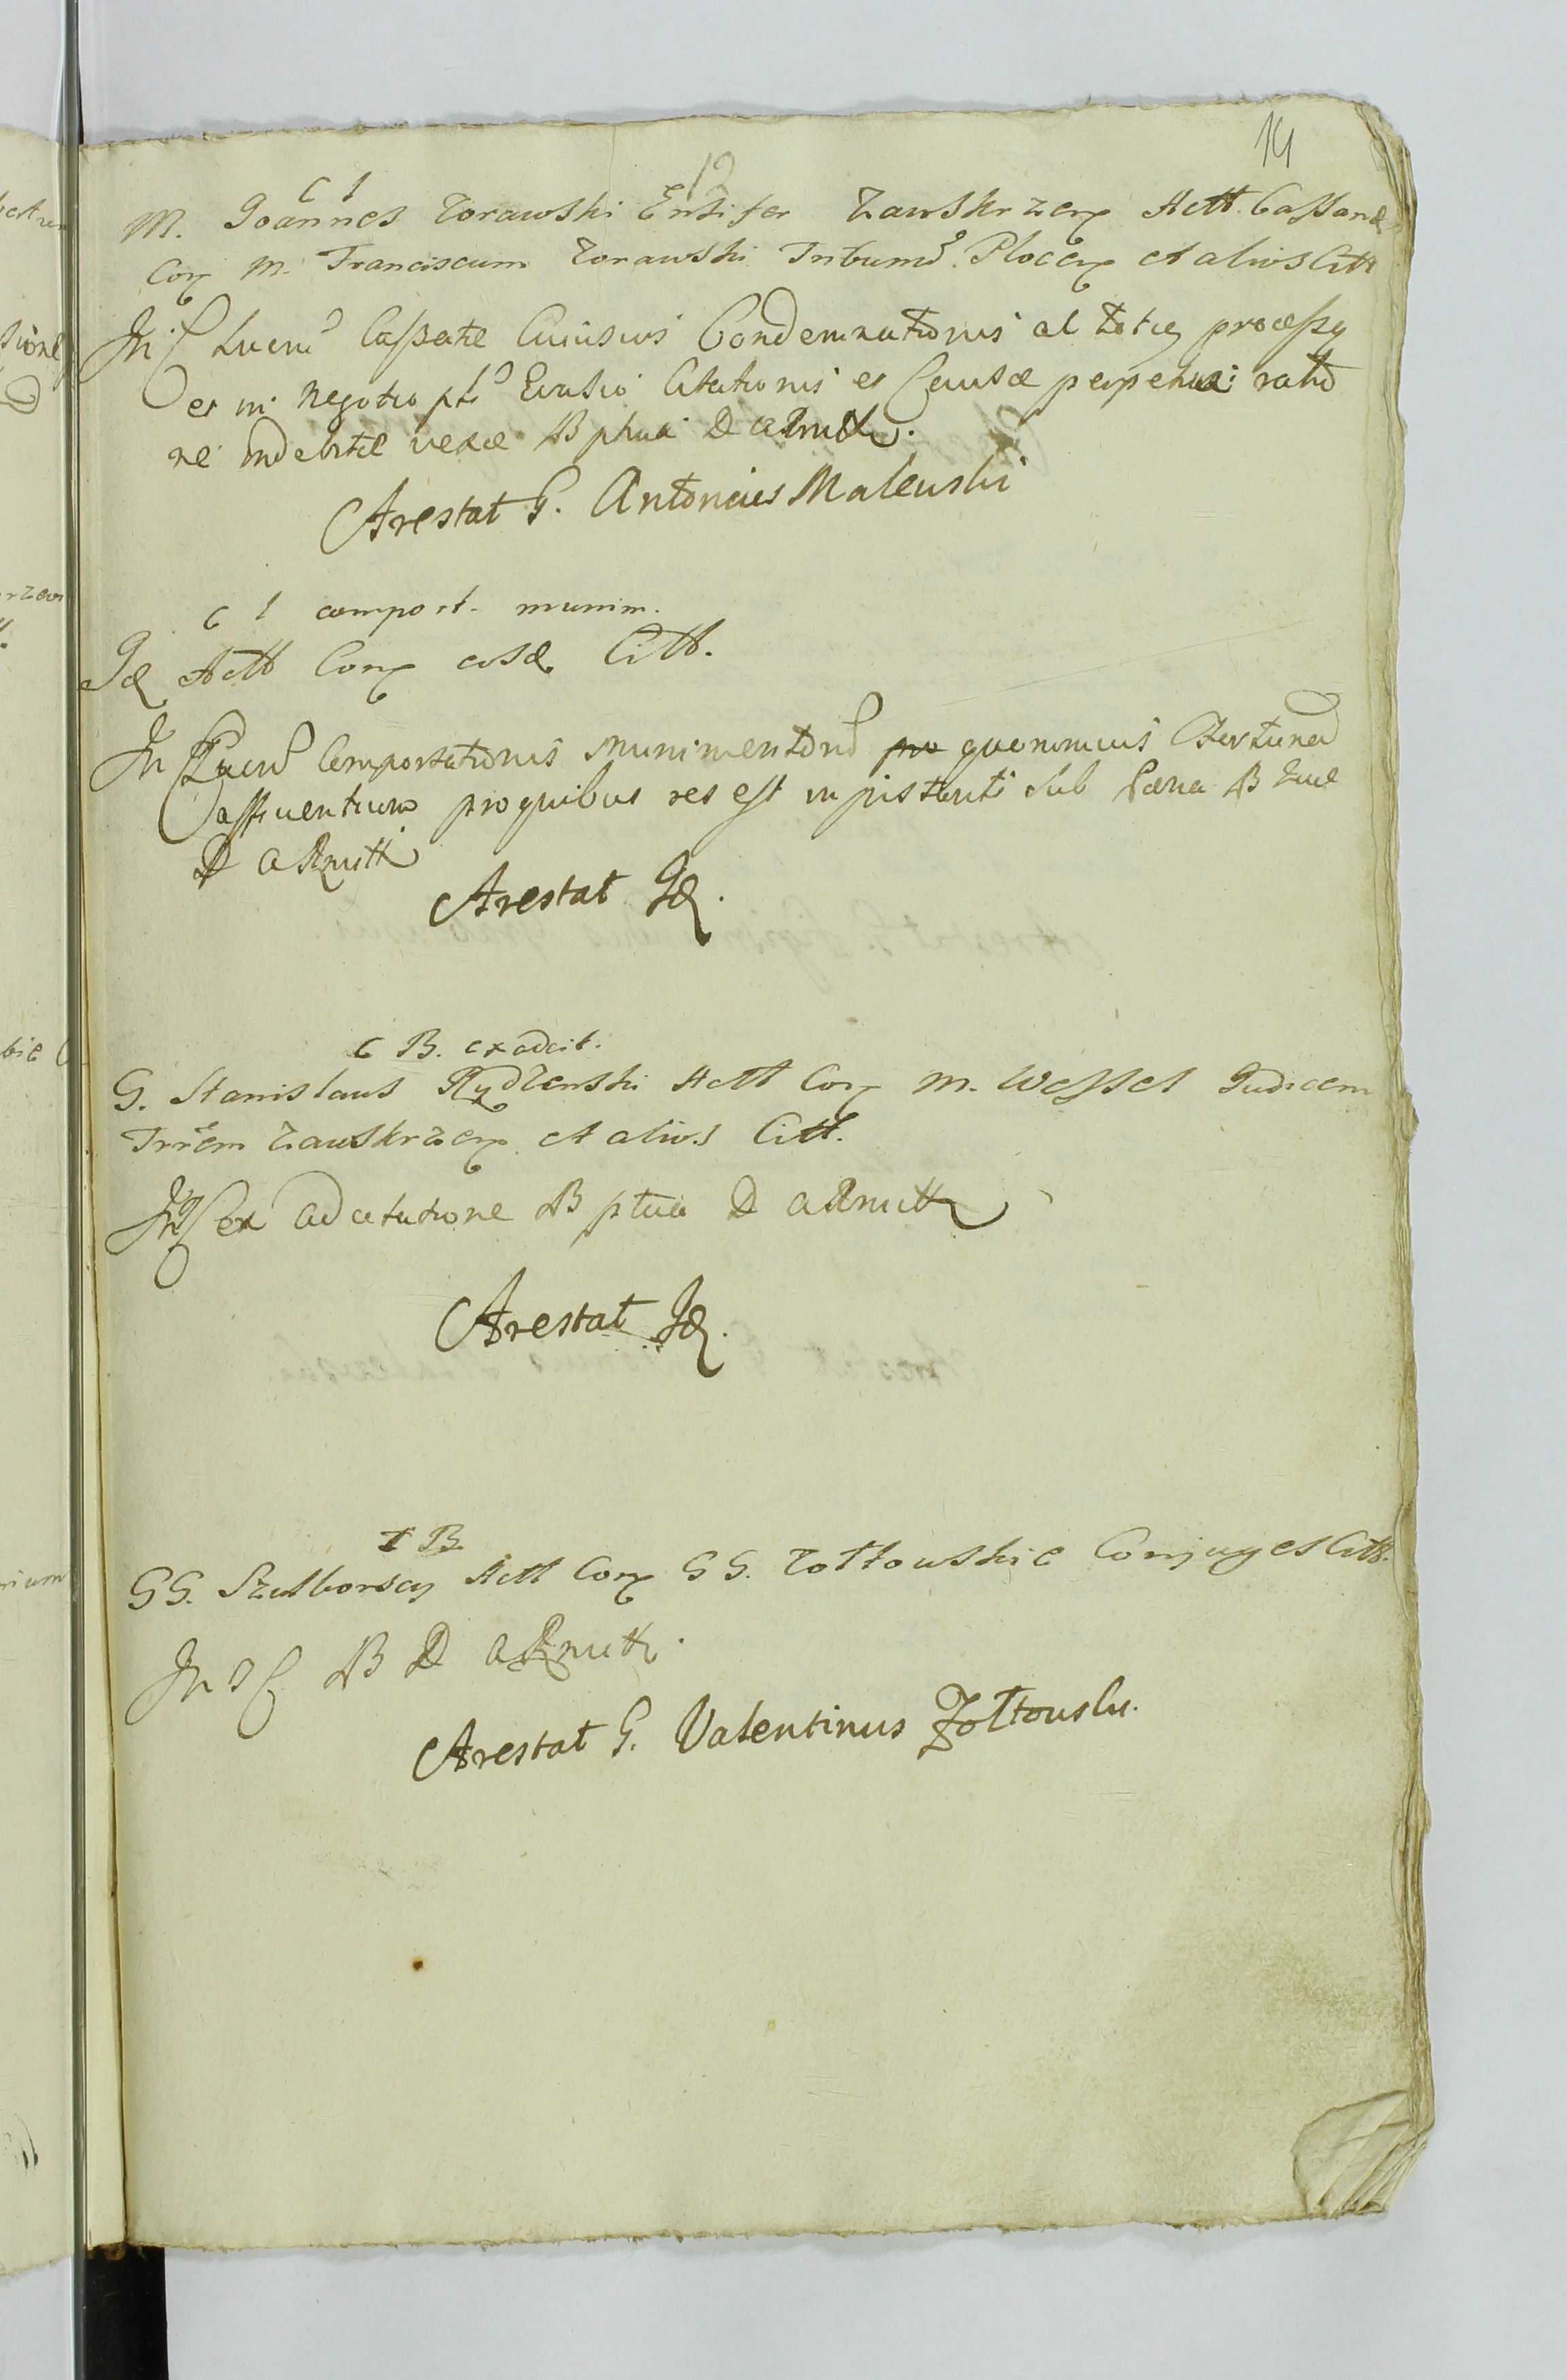 14
12
C 1
M. Joannes Zorawski Ensifer Zawskrzen Actt. Cassand
Con M. Franciscum Zorawski Tribunu Plocen et alios Citt
In Lucru Cassatae Cuiusvis Condemnationis ac totiq processq
et in negotio pti Evasio Citationis et Causae perpetua: ratio
ne indebitae vexae B ptua D a Rmitt.
Arestat G. Antonius Malewski
C 1 comport. munim.
Id Actt Con eosd Citt.
In Lucru Comportationis Munimentoru quoruvis Fortunae
assuentium pro quibus res est in pistanti sub Paena B
D a Rmitt
Arestat Id.
C B. ex adcit.
G. Stanislaus Rydzewski Actt Con M. Wessel Judicem
Trrem Zawskrzen et alios Citt.
In ex adcitatione B ptua D a Rmitt
Arestat Id.
1 B
GG. Szulborscy Actt Con GG. Zołtowskie Conjuges Citt.
In B D a Rmitt.
Arestat G. Valentinus Zołtowski.